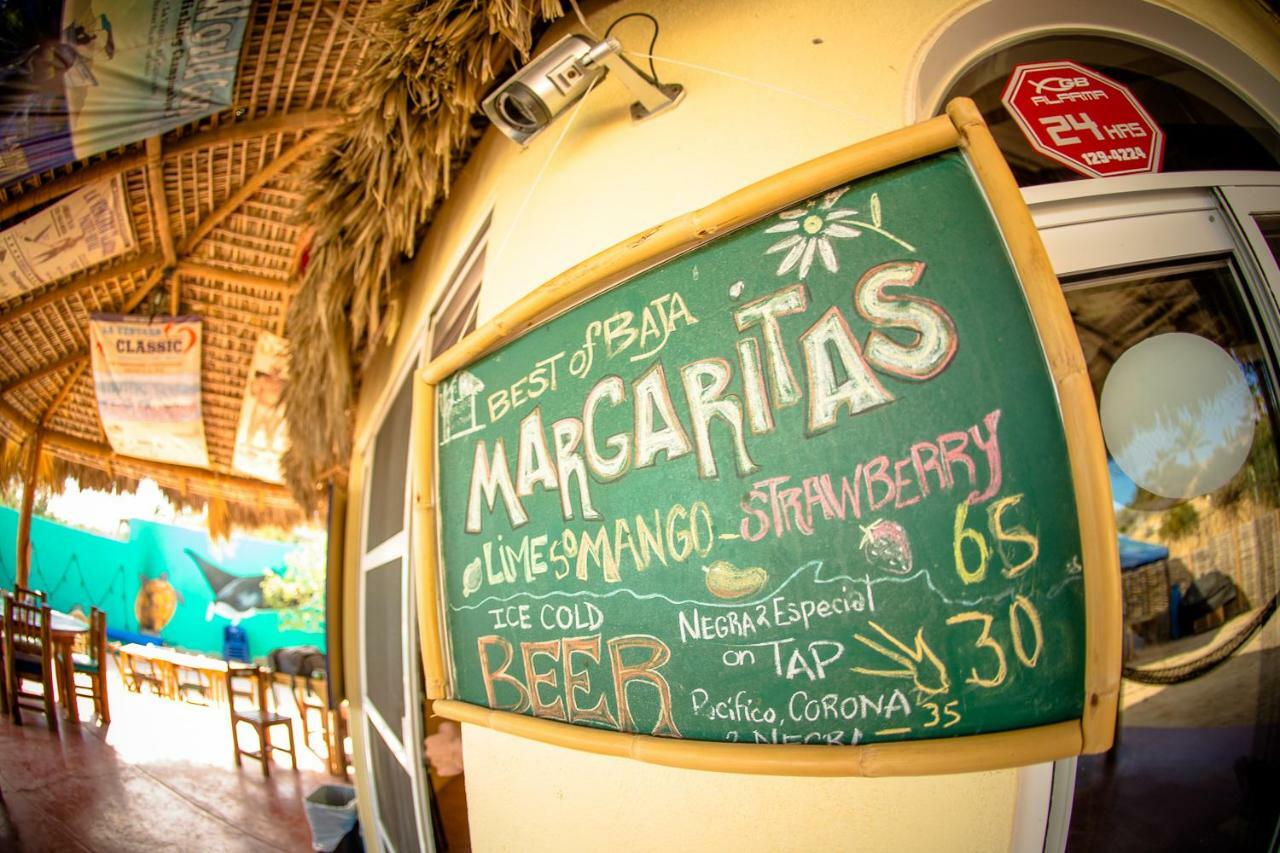 LA VENTANA
CLASSIC
XGB
ALARMA
24 HRS
129-4224
BEST of BAJA
MARGARITAS
LIME 50 MANGO - STRAWBERRY 65
ICE COLD
BEER
NEGRA & Especial
on TAP 30
Pacifico, CORONA 35
& NEGRA